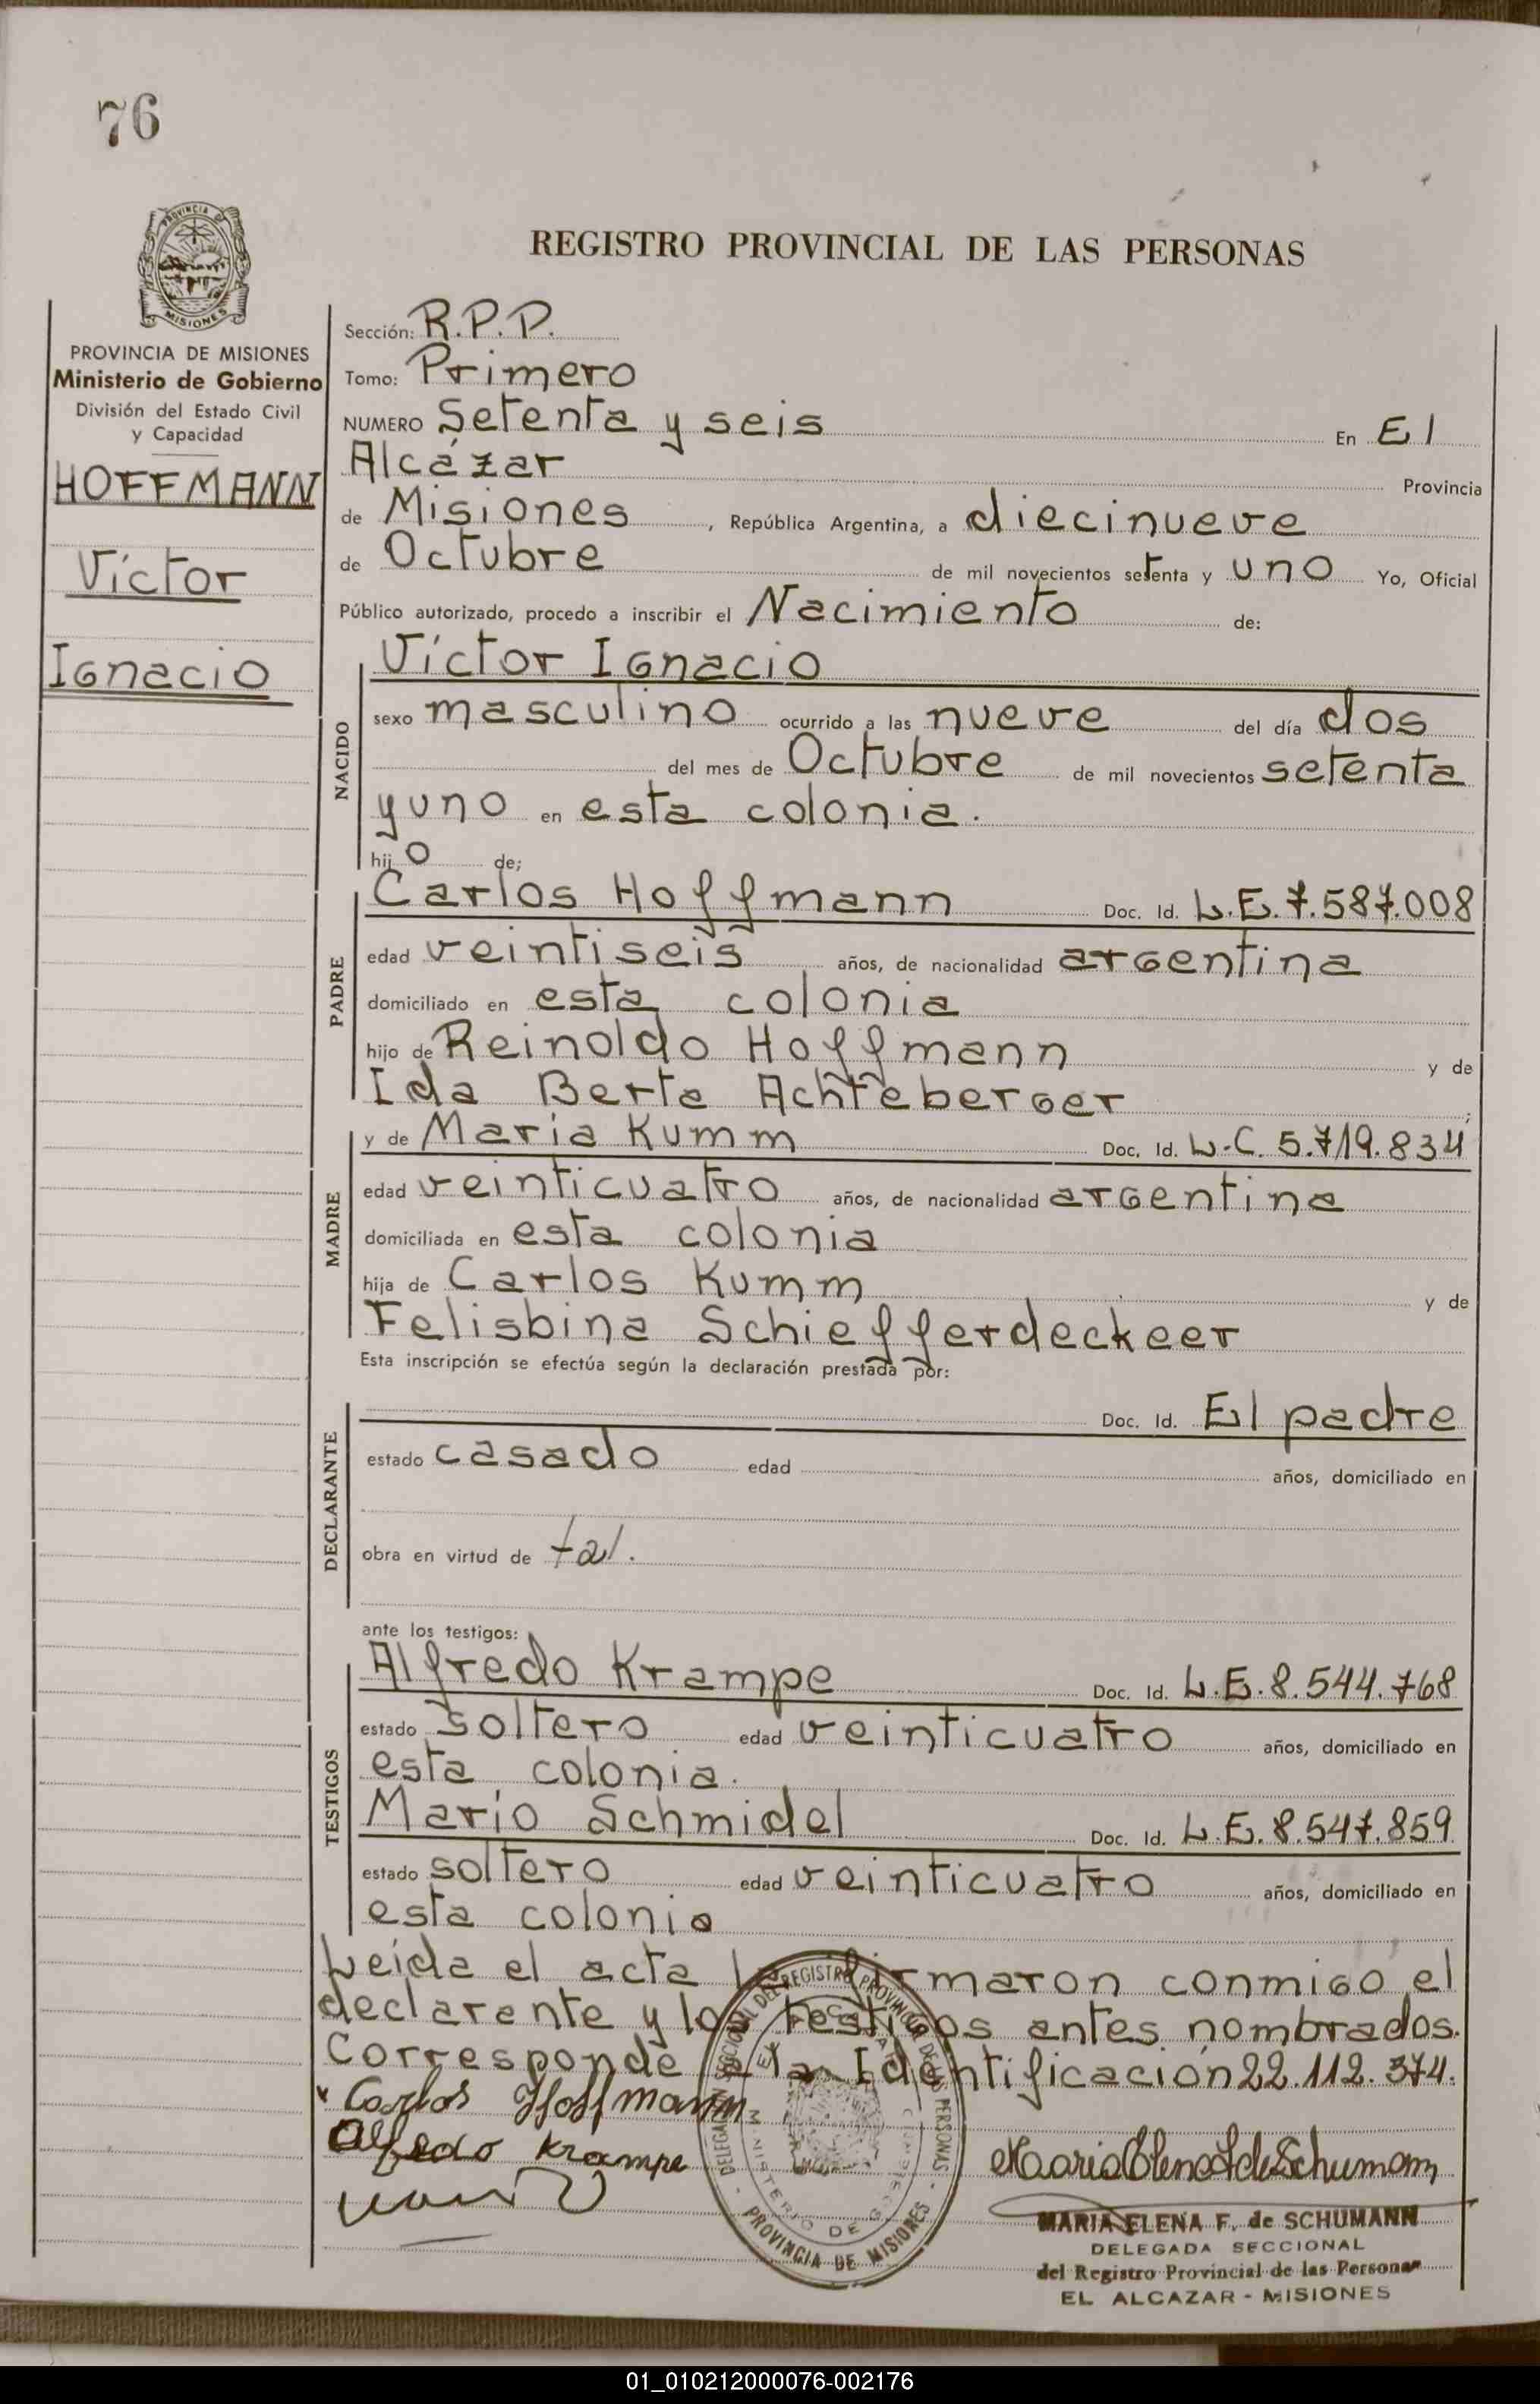 76
REGISTRO PROVINCIAL DE LAS PERSONAS
PROVINCIA DE MISIONES
Ministerio de Gobierno
División del Estado Civil
y Capacidad
HOFFMANN
Víctor
Ignacio
Sección: R.P.P.
Tomo: Primero
NUMERO Setenta y seis En El
Alcázar Provincia
de Misiones, República Argentina, a diecinueve
de Octubre de mil novecientos setenta y uno Yo, Oficial
Público autorizado, procedo a inscribir el Nacimiento de:
NACIDO
Víctor Ignacio
sexo masculino ocurrido a las nueve del día dos
del mes de Octubre de mil novecientos setenta
y uno en esta colonia.
hijo de;
PADRE
Carlos Hoffmann Doc. Id. L.E. 7.587.008
edad veintiseis años, de nacionalidad argentina
domiciliado en esta colonia
hijo de Reinoldo Hoffmann y de
Ida Berta Achteberger;
MADRE
y de María Kumm Doc. Id. L.C. 5.719.834
edad veinticuatro años, de nacionalidad argentina
domiciliada en esta colonia
hija de Carlos Kumm y de
Felisbina Schiefferdeckeer
Esta inscripción se efectúa según la declaración prestada por:
DECLARANTE
Doc. Id. El padre
estado casado edad años, domiciliado en
obra en virtud de tal.
ante los testigos:
TESTIGOS
Alfredo Krampe Doc. Id. L.E. 8.544.768
estado soltero edad veinticuatro años, domiciliado en
esta colonia.
Mario Schmidel Doc. Id. L.E. 8.547.859
estado soltero edad veinticuatro años, domiciliado en
esta colonia
Leída el acta la firmaron conmigo el
declarante y los testigos antes nombrados.
Corresponde a la Identificación 22.112.374.
Carlos Hoffmann
Alfredo Krampe
DELEGACION SECCIONAL DEL REGISTRO PROVINCIAL DE LAS PERSONAS
EL ALCAZAR
MINISTERIO DE GOBIERNO
PROVINCIA DE MISIONES
Maria Elena F de Schumann
MARIA ELENA F. de SCHUMANN
DELEGADA SECCIONAL
del Registro Provincial de las Personas
EL ALCAZAR - MISIONES
01_010212000076-002176